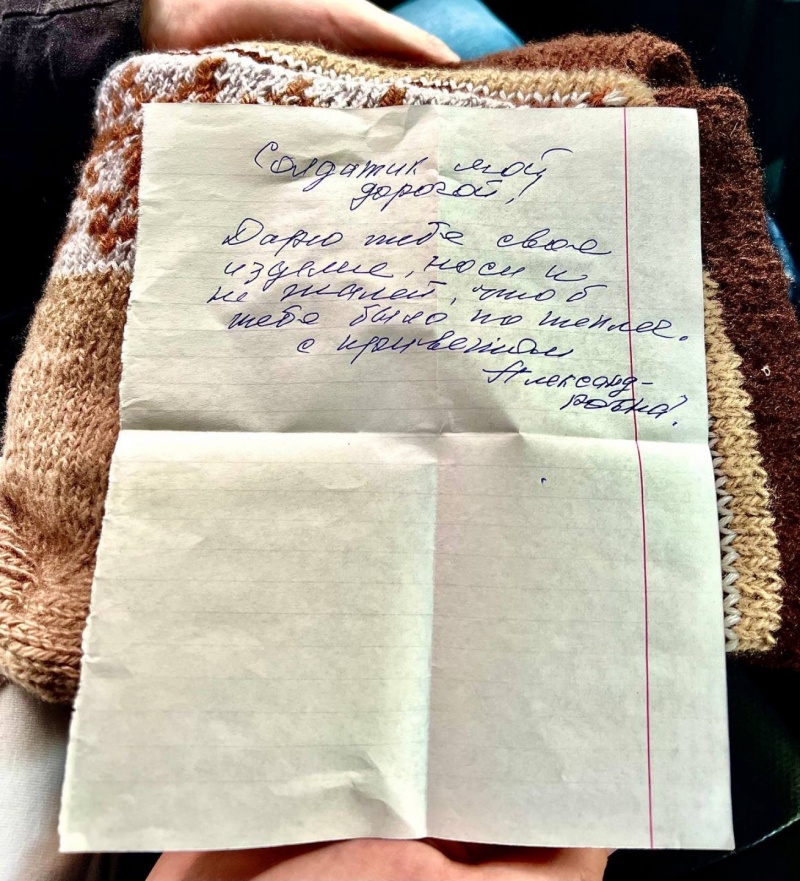 Солдатик мой
дорогой!
Дарю тебе свое
изделие, носи и
не жалей, чтоб
тебе было по теплее.
с приветом
Александ-
ровна.